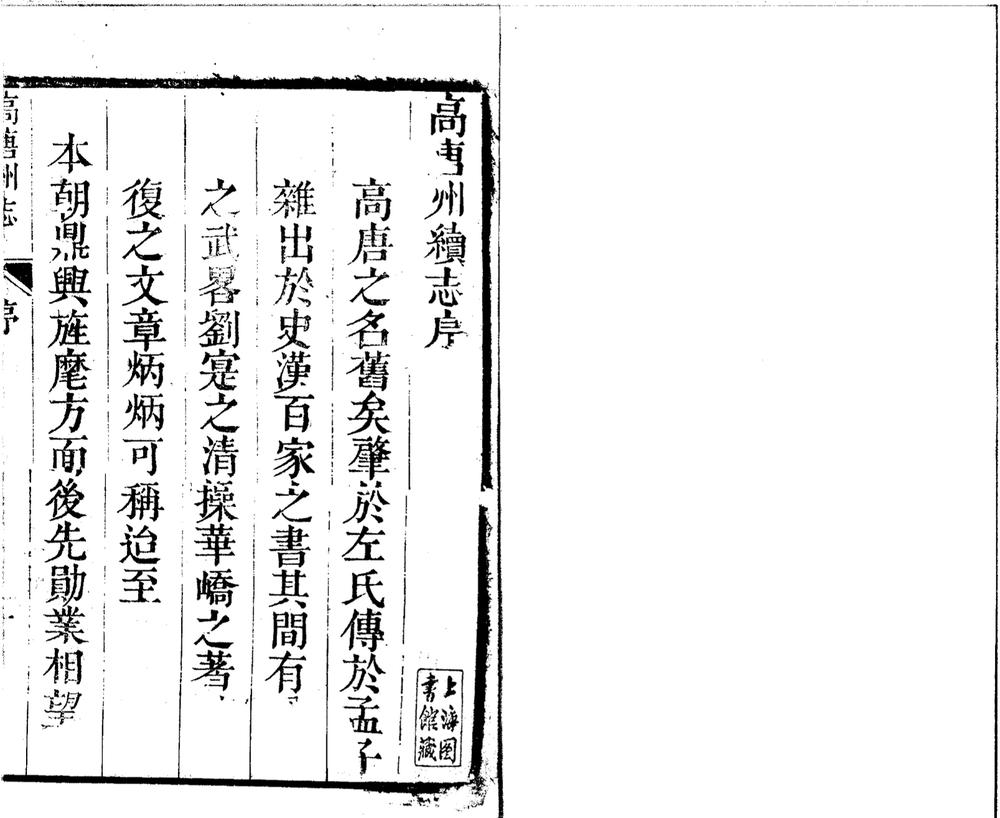 高唐州續志序
高唐之名舊矣肇於左氏傳於孟子
雜出於史漢百家之書其間有
之武畧劉寔之清操華嶠之著
復之文章炳炳可稱迨至
本朝鼎興旌麾方面後先勛業相望
高唐州志
序
上海图
書館藏